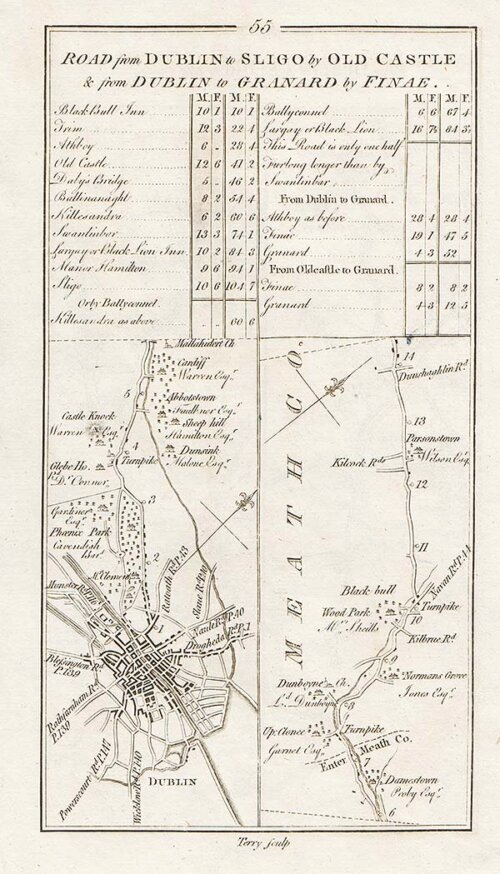 55
ROAD from DUBLIN to SLIGO by OLD CASTLE
& from DUBLIN to GRANARD by FINAE.
M. F. M. F.
Black Bull Inn 10 1 10 1
Trim 12 3 22 4
Athboy 6 - 28 4
Old Castle 12 6 41 2
Daly's Bridge 5 - 46 2
Ballinanaght 8 2 54 4
Killesandra 6 2 60 6
Swanlinbar 13 3 74 1
Largay or Black Lion Inn 10 2 84 3
Manor Hamilton 9 6 94 1
Sligo 10 6 104 7
Or by Ballyconnel
Killesandra as above - - 60 6
M. F. M. F.
Ballyconnel 6 6 67 4
Largay or Black Lion 16 7½ 84 3½
This Road is only one half
Furlong longer than by
Swanlinbar
From Dublin to Granard.
Athboy as before 28 4 28 4
Finae 19 1 47 5
Granard 4 3 52
From Oldcastle to Granard.
Finae 8 2 8 2
Granard 4 3 12 5
Mallahidert Ch
Cardiff
Warren Esqr.
5
Abbotstown
Faulkner Esqr.
Sheep hill
Hamilton Esqr.
Castle Knock
Warren Esqr.
Dunsink
Malone Esqr.
Globe Ho.
Dr. Connor
4
Turnpike
3
Gardiner
Esqr.
Phœnix Park
Cavendish
Bar.
2
Mr. Clemens
Ratoath Rd. P.13
Slane Rd.
Munster Rd.
Naul Rd. P.10
Drogheda Rd. P.1
1
Blessington Rd
P.139
Rathfarnham Rd
P.139
Powerscourt Rd. P.141
Wicklow Rd. P.140
DUBLIN
MEATH CO.
14
Dunshaghlin Rd
13
Parsonstown
Wilson Esq.
Kilcock Rds
12
11
Navan Rd. P.44
Black bull
Wood Park
Mr. Sheills
Turnpike
10
Kilbrue Rd
9
Normans Grove
Jones Esqr.
Dunboyne Ch.
Ld. Dunboyne
8
Up. Clonee
Garnet Esq.
Turnpike
Enter Meath Co.
7
Damestown
Proby Esqr.
6
Terry sculp